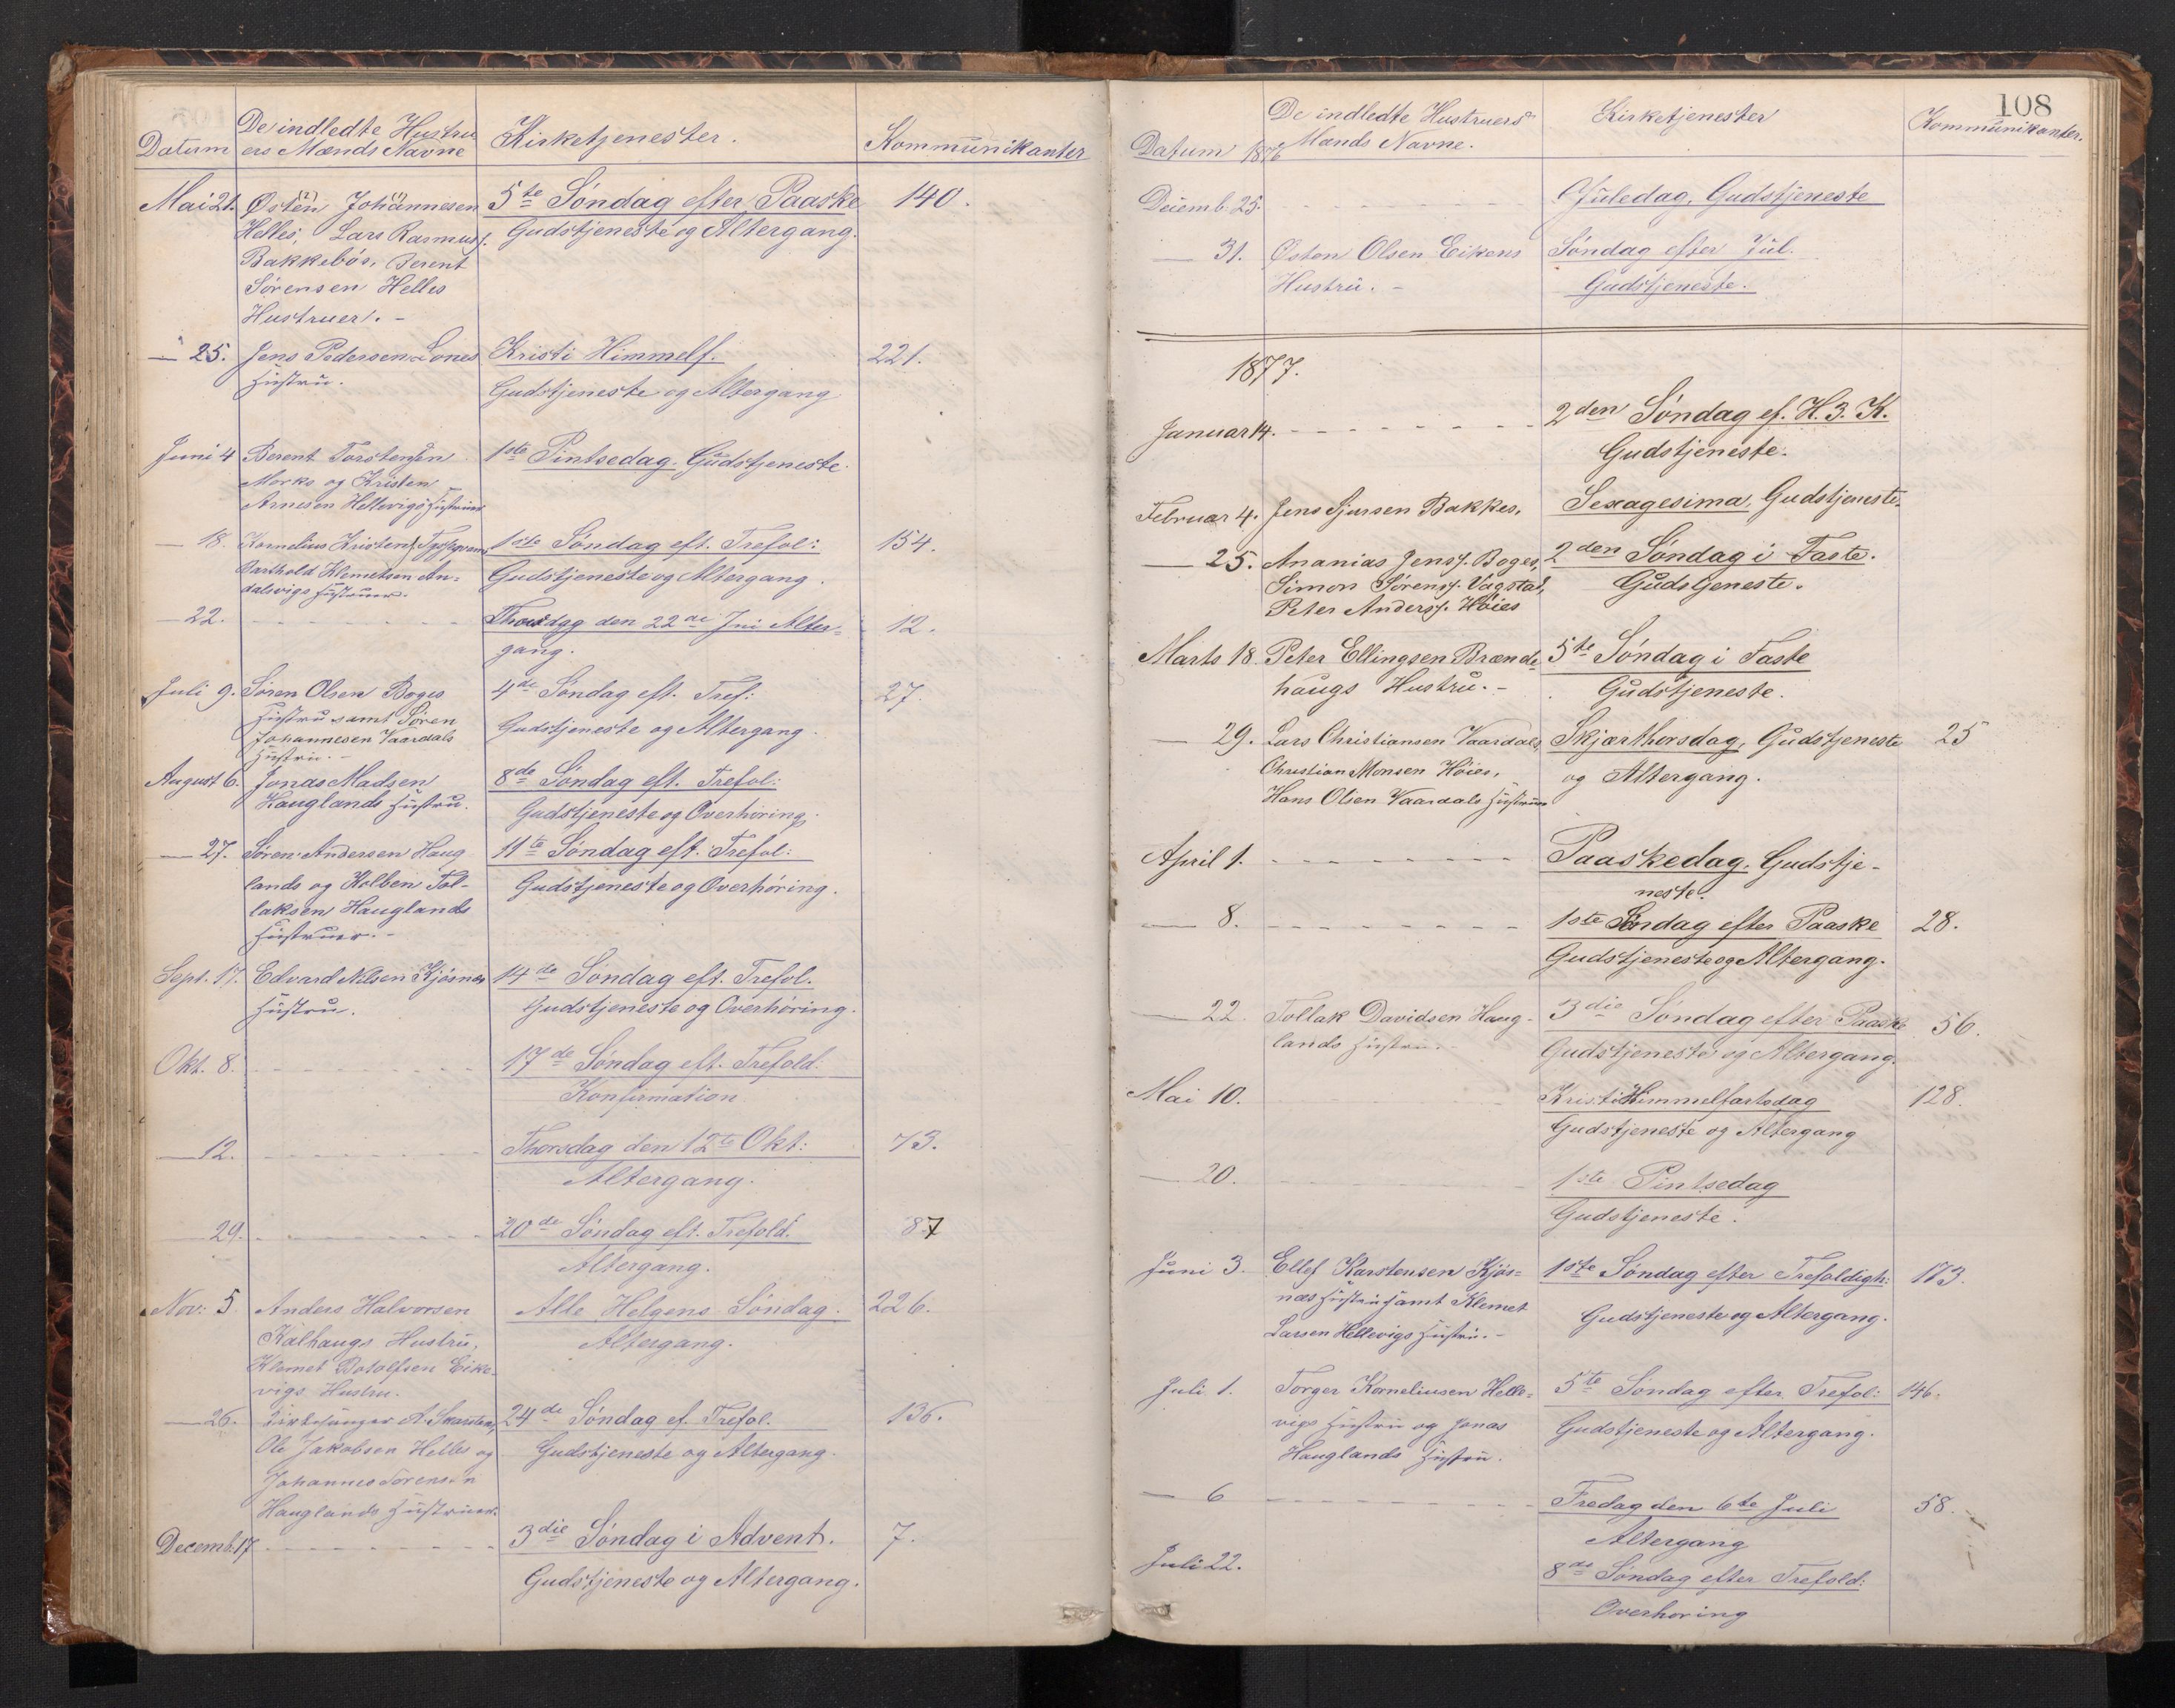 Datum
De indledte Hustru
ers Mænds Navne
Kirketjenester.
Kommunikanter
Mai 21.
Østen Johannesen
Helles, Lars Rasmuss.
Bakkebös, Berent
Sørensen Helles
Hustruer. -
5te Söndag efter Paaske
Gudstjeneste og Altergang.
140.
— 25.
Jens Pedersen Lones
Hustru.
Kristi Himmelf.
Gudstjeneste og Altergang
221.
Juni 4
Berent Torstensen
Morks og Kristen
Arnesen Hellevigs Hustruer
1ste Pintsedag. Gudstjeneste.
— 18.
Kornelius Kristens.
Barthold Klemetsen An-
dalsvigs Hustruer.
1ste Söndag eft. Trefol:
Gudstjeneste og Altergang.
154.
— 22.
Thorsdag den 22de Juni Alter-
gang.
12.
Juli 9.
Sören Olsen Boges
Hustru samt Sören
Johannesen Vaardals
Hustru. -
4de Söndag eft. Tref:
Gudstjeneste og Altergang.
27.
August 6.
Jonas Madsen
Hauglands Hustru.
8de Söndag eft. Trefol:
Gudstjeneste og Overhöring.
— 27.
Sören Andersen Haug
lands og Kolben Tol-
laksen Hauglands
Hustruer. -
11te Söndag eft. Trefol:
Gudstjeneste og Overhöring.
Sept. 17.
Edvard Nilsen Kjösnes
Hustru.
14de Söndag eft. Trefol.
Gudstjeneste og Overhöring.
Okt. 8.
17de Söndag eft. Trefold.
Konfirmation
— 12.
Thorsdag den 12te Okt:
Altergang.
73.
— 29.
20de Söndag eft. Trefold.
Altergang.
87
Nov: 5.
Anders Halvorsen
Kalhaugs Hustru,
Klemet Botolfsen Eike-
vigs Hustru.
Alle Helgens Söndag.
Altergang.
226.
— 26.
Kirkesanger A. Skarstens,
Ole Jakobsen Helles og
Johannes Sörensen
Hauglands Hustruer.
24de Söndag ef. Trefol.
Gudstjeneste og Altergang.
136.
Decemb. 17
3die Söndag i Advent.
Gudstjeneste og Altergang.
7.
108
Datum 1876
De indledte Hustruers
Mænds Navne.
Kirketjenester
Kommunikanter.
Decemb. 25.
Juledag. Gudstjeneste
— 31.
Østen Olsen Eikens
Hustru. -
Söndag efter Jul.
Gudstjeneste.
1877.
Januar 14.
2den Söndag ef. H. 3. K.
Gudstjeneste.
Februar 4.
Jens Sjursen Bakkes.
Sexagesima, Gudstjeneste.
— 25.
Ananias Jenss. Boges,
Simon Sörens. Vagstad,
Peter Anderss. Höies
2den Söndag i Faste.
Gudstjeneste.
Marts 18.
Peter Ellingsen Brænde-
haugs Hustru. -
5te Söndag i Faste
Gudstjeneste.
— 29.
Lars Christiansen Vaardals,
Christian Monsen Höies,
Hans Olsen Vaardals Hustruer
Skjærthorsdag, Gudstjeneste
og Altergang.
25
April 1.
Paaskedag. Gudstje-
neste.
— 8.
1ste Söndag efter Paaske
Gudstjeneste og Altergang.
28.
— 22.
Tollak Davidsen Haug-
lands Hustru. -
3die Söndag efter Paaske
Gudstjeneste og Altergang.
56.
Mai 10.
Kristi Himmelfartsdag
Gudstjeneste og Altergang
128.
— 20.
1ste Pintsedag
Gudstjeneste.
Juni 3.
Ellef Karstensen Kjös-
næs Hustru samt Klemet
Larsen Hellevigs Hustru. -
1ste Söndag efter Trefoldigh:
Gudstjeneste og Altergang.
173.
Juli 1.
Torger Korneliusen Helle-
vigs Hustru og Jonas
Hauglands Hustru.
5te Söndag efter Trefol:
Gudstjeneste og Altergang.
146.
— 6
Fredag den 6te Juli
Altergang
58.
Juli 22.
8de Söndag efter Trefold:
Overhöring